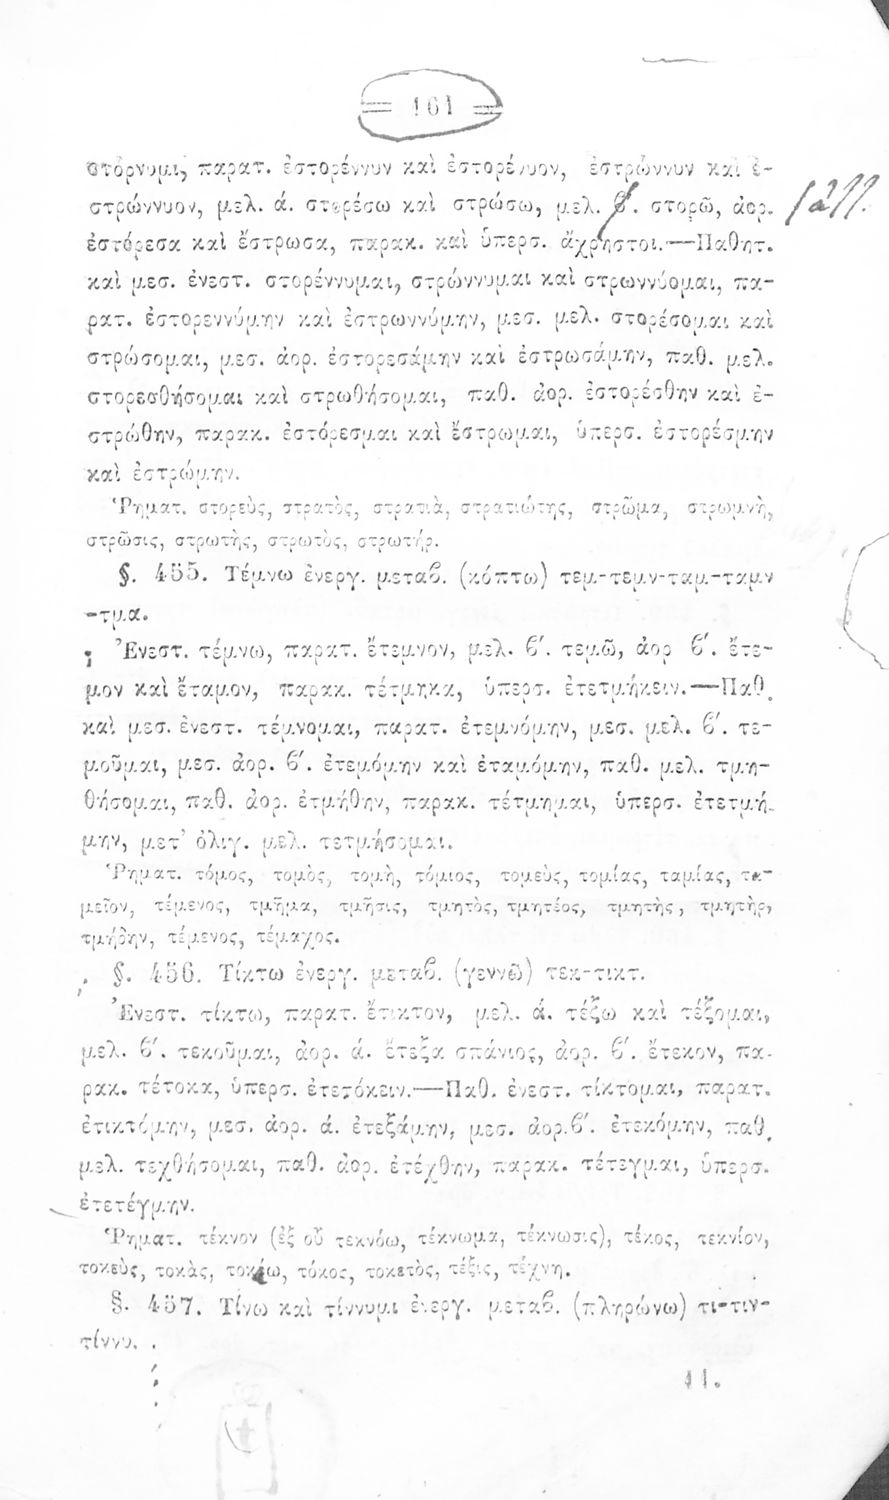 = 161 =
στόρνυμι, παρατ. ἐστορέννυν καὶ ἐστορέννυον, ἐστρώννυν καὶ ἐ-
στρώννυον, μελ. ά. στορέσω καὶ στρώσω, μελ. ϐ. στορῶ, ἀορ.
ἐστόρεσα καὶ ἔστρωσα, παρακ. καὶ ὑπερσ. ἄχρηστοι.—Παθητ.
καὶ μεσ. ἐνεστ. στορέννυμαι, στρώννυμαι καὶ στρωννύομαι, πα-
ρατ. ἐστορεννύμην καὶ ἐστρωννύμην, μεσ. μελ. στορέσομαι καὶ
στρώσομαι, μεσ. ἀορ. ἐστορεσάμην καὶ ἐστρωσάμην, παθ. μελ.
στορεσθήσομαι καὶ στρωθήσομαι, παθ. ἀορ. ἐστορέσθην καὶ ἐ-
στρώθην, παρακ. ἐστόρεσμαι καὶ ἔστρωμαι, ὑπερσ. ἐστορέσμην
καὶ ἐστρώμην.
Ῥηματ. στορεὺς, στρατὸς, στρατιὰ, στρατιώτης, στρῶμα, στρωμνὴ,
στρῶσις, στρωτὴς, στρωτὸς, στρωτήρ.
§. 455. Τέμνω ἐνεργ. μεταϐ. (κόπτω) τεμ-τεμν-ταμ-ταμν
-τμα.
Ἐνεστ. τέμνω, παρατ. ἔτεμνον, μελ. ϐ'. τεμῶ, ἀορ ϐ'. ἔτε-
μον καὶ ἔταμον, παρακ. τέτμηκα, ὑπερσ. ἐτετμήκειν.—Παθ.
καὶ μεσ. ἐνεστ. τέμνομαι, παρατ. ἐτεμνόμην, μεσ. μελ. ϐ'. τε-
μοῦμαι, μεσ. ἀορ. ϐ'. ἐτεμόμην καὶ ἐταμόμην, παθ. μελ. τμη-
θήσομαι, παθ. ἀορ. ἐτμήθην, παρακ. τέτμημαι, ὑπερσ. ἐτετμή-
μην, μετ' ὀλιγ. μελ. τετμήσομαι.
Ῥηματ. τόμος, τομὸς, τομὴ, τόμιος, τομεὺς, τομίας, ταμίας, τα-
μεῖον, τέμενος, τμῆμα, τμῆσις, τμητὸς, τμητέος, τμητὴς, τμητὴρ,
τμήδην, τέμενος, τέμαχος.
§. 456. Τίκτω ἐνεργ. μεταϐ. (γεννῶ) τεκ-τικτ.
Ἐνεστ. τίκτω, παρατ. ἔτικτον, μελ. ά. τέξω καὶ τέξομαι,
μελ. ϐ'. τεκοῦμαι, ἀορ. ά. ἔτεξα σπάνιος, ἀορ. ϐ'. ἔτεκον, πα-
ρακ. τέτοκα, ὑπερσ. ἐτετόκειν.—Παθ. ἐνεστ. τίκτομαι, παρατ.
ἐτικτόμην, μεσ. ἀορ. ά. ἐτεξάμην, μεσ. ἀορ.ϐ'. ἐτεκόμην, παθ.
μελ. τεχθήσομαι, παθ. ἀορ. ἐτέχθην, παρακ. τέτεγμαι, ὑπερσ.
ἐτετέγμην.
Ῥηματ. τέκνον (ἐξ οὗ τεκνόω, τέκνωμα, τέκνωσις), τέκος, τεκνίον,
τοκεὺς, τοκὰς, τοκάω, τόκος, τοκετὸς, τέξις, τέχνη.
§. 457. Τίνω καὶ τίννυμι ἐνεργ. μεταϐ. (πληρώνω) τι-τιν-
τίννυ.
11.